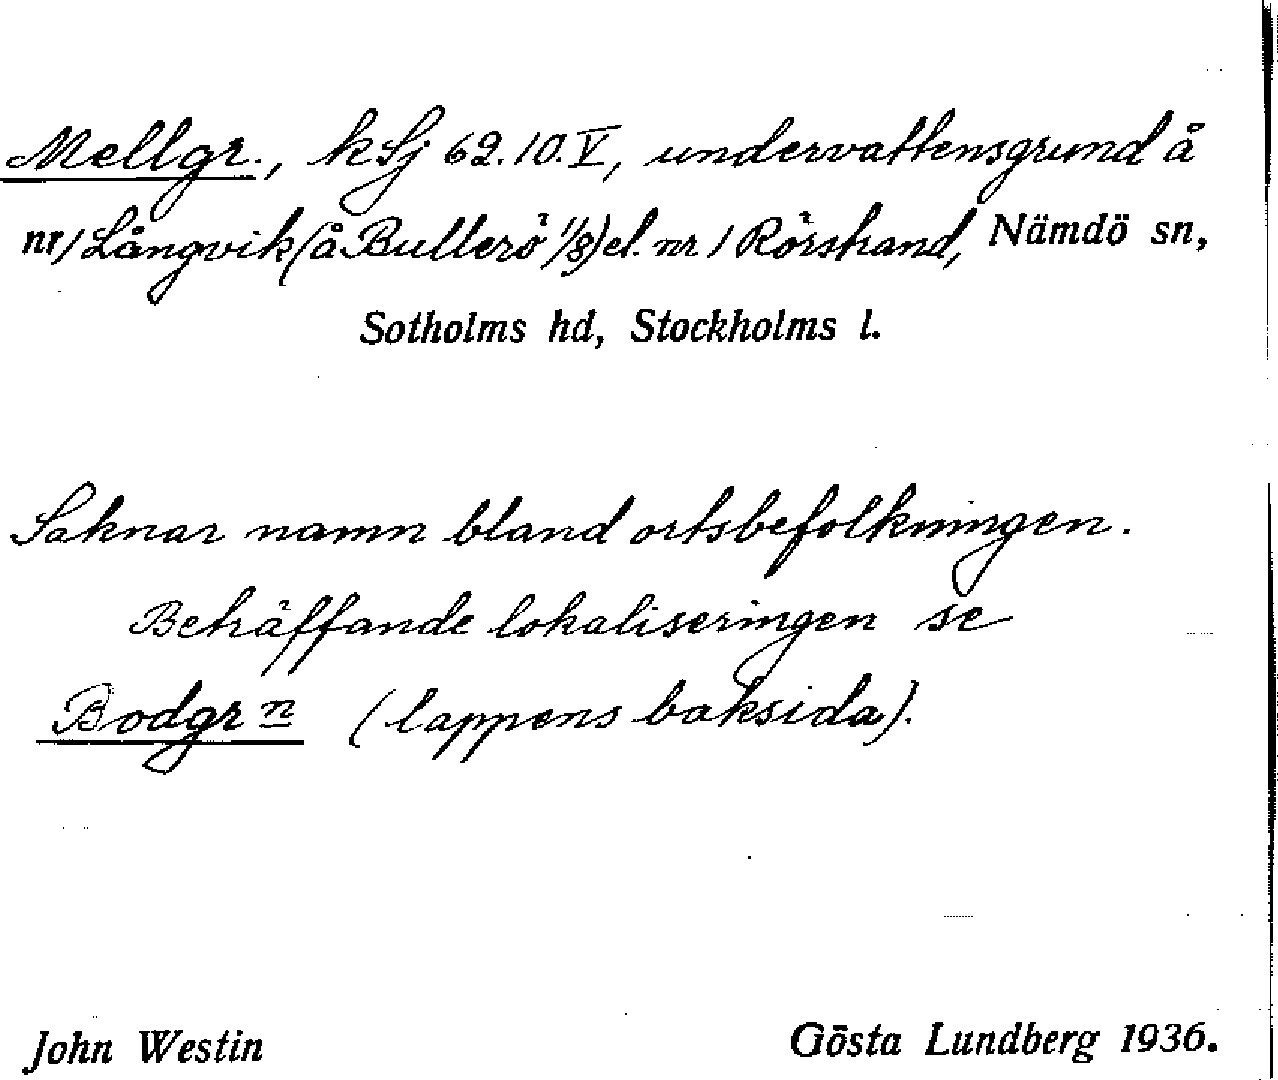 Mellgr., k Sj 62.10.V, undervattensgrund å
nr 1 Långvik (å Bullerö 1/8) el. nr 1 Rörstrand, Nämdö sn,
Sotholms hd, Stockholms l.
Saknar namn bland ortsbefolkningen.
Beträffande lokaliseringen se
Bodgrn (lappens baksida).
John Westin
Gösta Lundberg 1936.